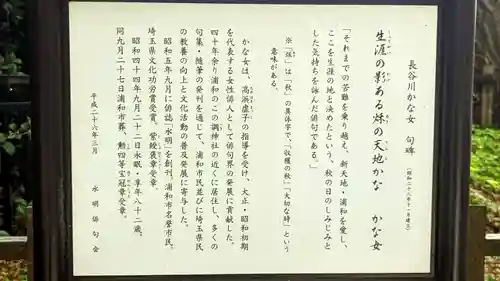 長谷川かな女 句碑 (昭和二八年十一月建立)
生涯の影ある秌の天地かな かな女
「それまでの苦難を乗り越え、新天地・浦和を愛し、
ここを生涯の地と決めたという、秋の日のしみじみと
した気持ちを詠んだ俳句である。」
※「秌」は「秋」の異体字で、「収穫の秋」「大切な時」という
意味がある。
かな女は、高浜虚子の指導を受け、大正・昭和初期
を代表する女性俳人として俳句界の発展に貢献した。
四十年余り浦和のこの調神社の近くに居住し、多くの
句集・随筆の発刊を通じて、浦和市民並びに埼玉県民
の教養の向上と文化活動の普及発展に寄与した。
昭和五年九月に俳誌「水明」を創刊。浦和市名誉市民。
埼玉県文化功労賞受賞。紫綬褒章受章。
昭和四十四年九月二十二日永眠・享年八十二歳。
同九月二十七日浦和市葬。勲四等宝冠章受章。
平成二十六年三月 水明俳句会